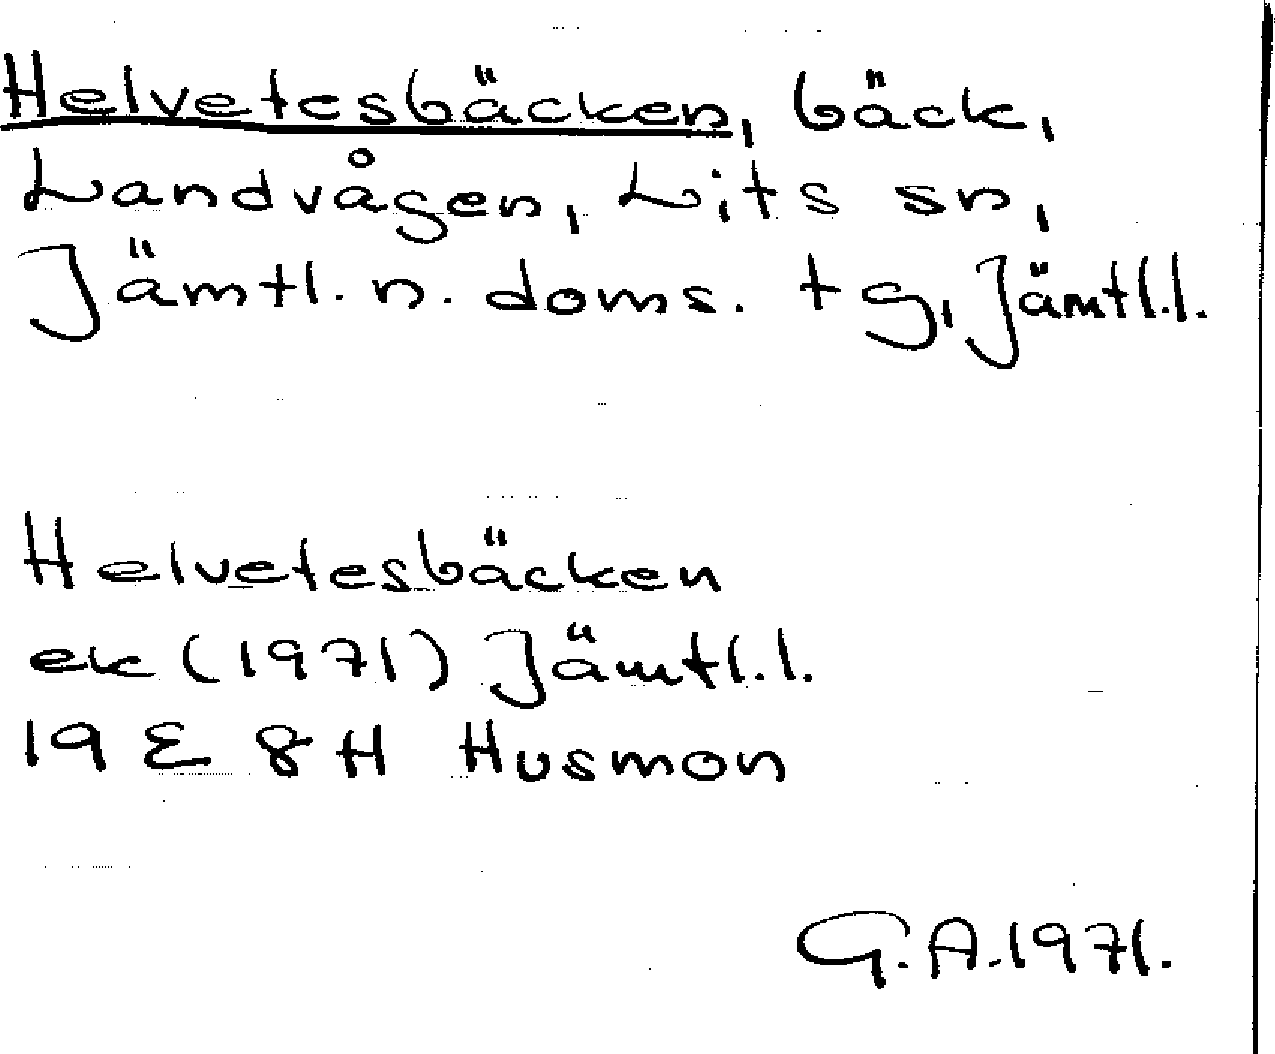 Helvetesbäcken, bäck,
Landvågen, Lits sn,
Jämtl. n. doms. tg, Jämtl.l.
Helvetesbäcken
ek (1971) Jämtl.l.
19 E 8H Husmon
G.A.1971.